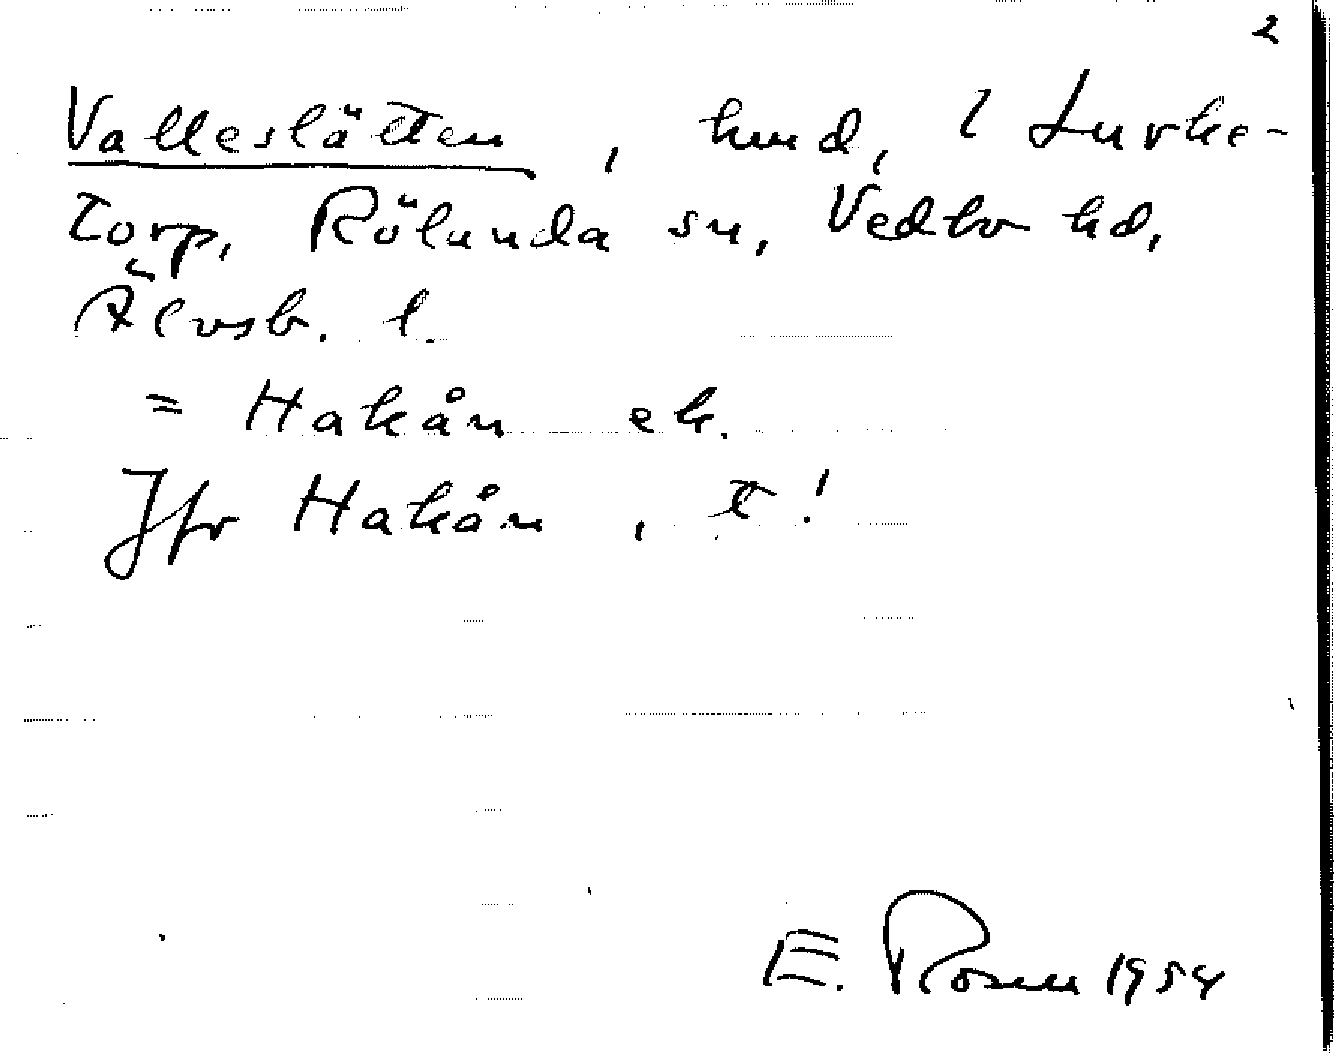 2
Valleslätten, hmd, Lurke-
torp, Rölanda sn, Vedbo hd,
Älvsb. l.
= Hakån ek.
Jfr Hakån, t!
E. Rosen 1954